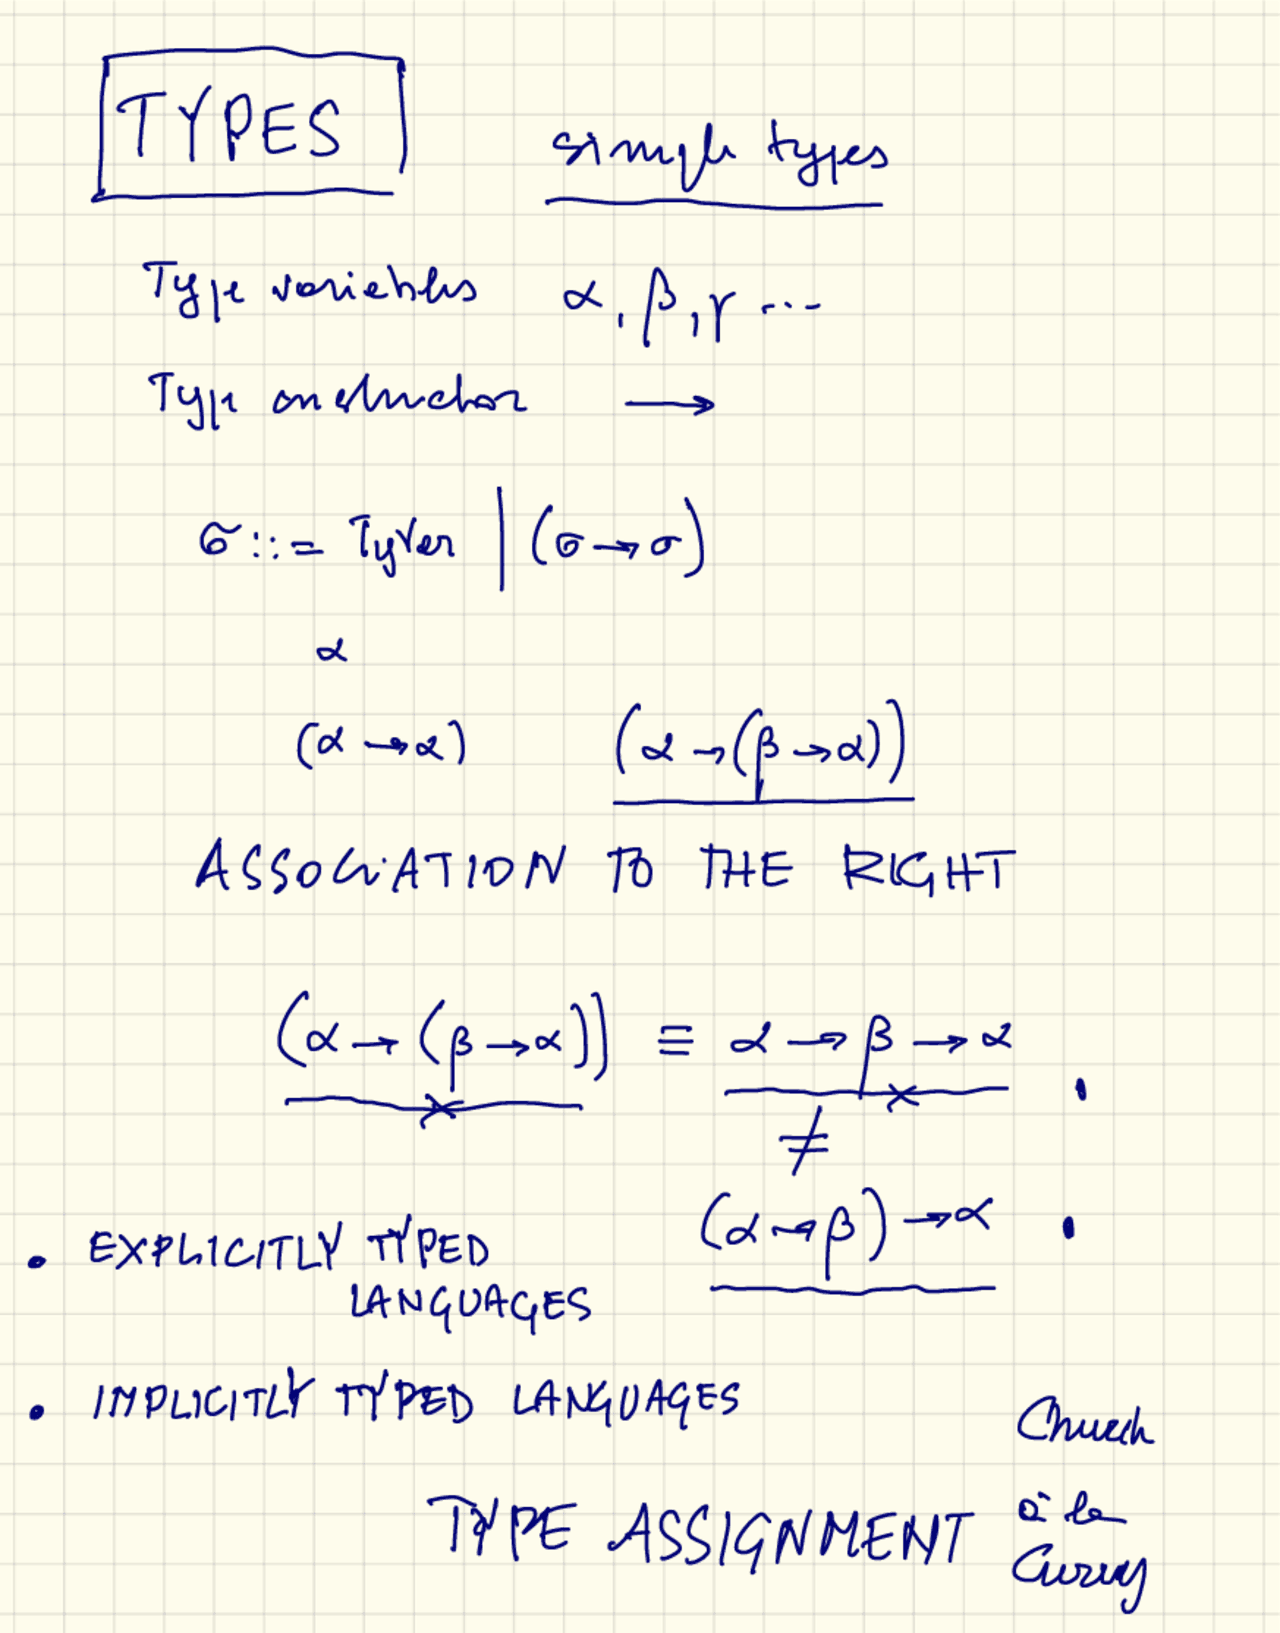 TYPES simple types
Type variables α, β, γ ...
Type constructor →
σ ::= TyVar | (σ → σ)
α
(α → α) (α → (β → α))
ASSOCIATION TO THE RIGHT
(α → (β → α)) ≡ α → β → α
≠
(α → β) → α
• EXPLICITLY TYPED
LANGUAGES
• IMPLICITLY TYPED LANGUAGES
Church
TYPE ASSIGNMENT à la
Curry